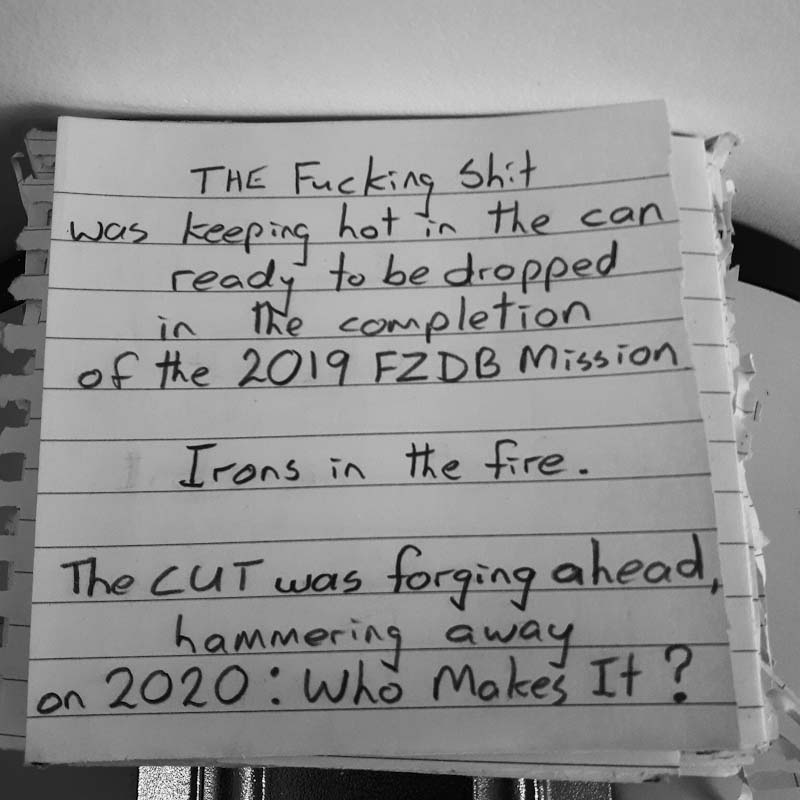 THE Fucking Shit
was keeping hot in the can
ready to be dropped
in the completion
of the 2019 FZDB Mission
Irons in the fire.
The CUT was forging ahead,
hammering away
on 2020: Who Makes It?